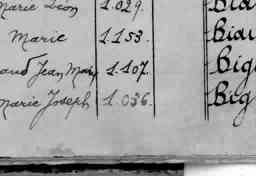 Marie Léon 1.029. Bid
Marie 1.153. Bidi
aud Jean, Mary 1.107. Big
Marie Joseph 1.036. Big